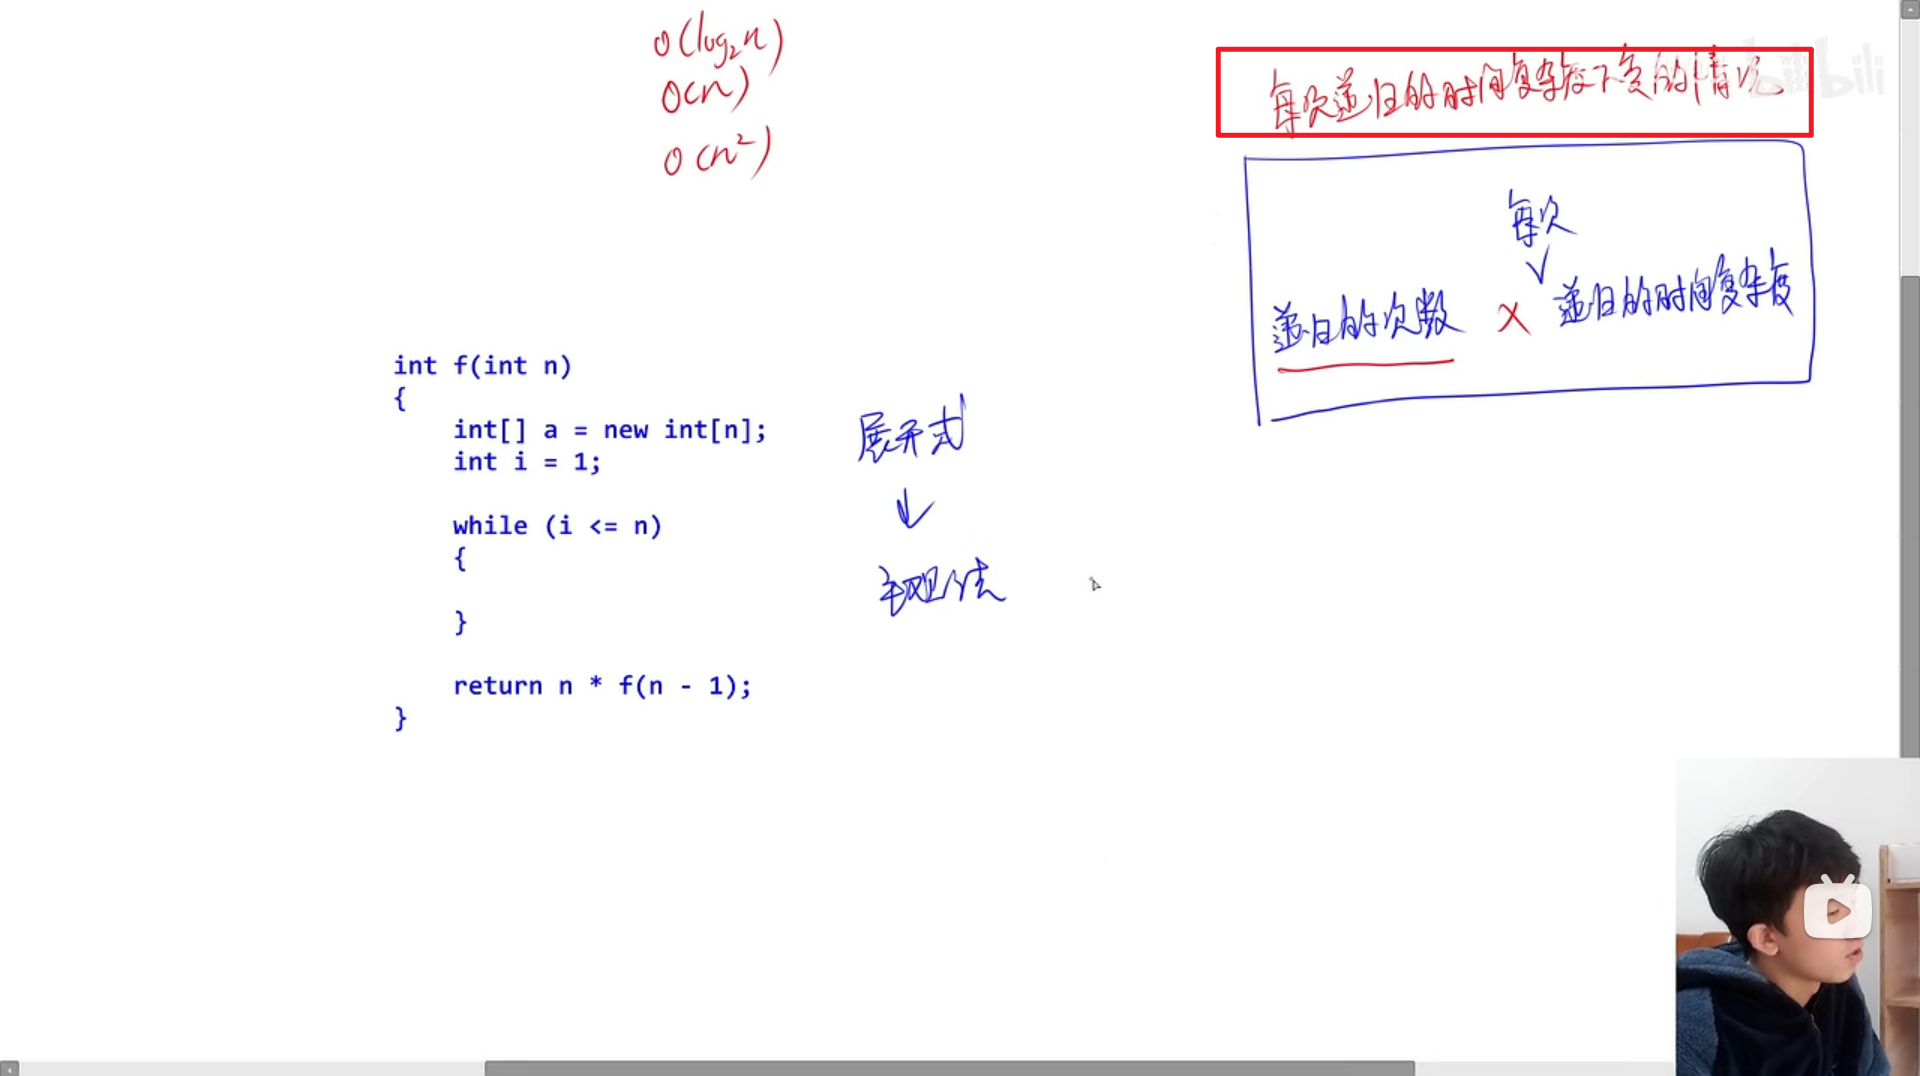 O(log₂n)
O(n)
O(n²)
每次递归的时间复杂度不变的情况
bilibili
每次
递归的次数 × 递归的时间复杂度
int f(int n)
{
int[] a = new int[n];
int i = 1;
while (i <= n)
{
}
return n * f(n - 1);
}
展开式
↓
主观法